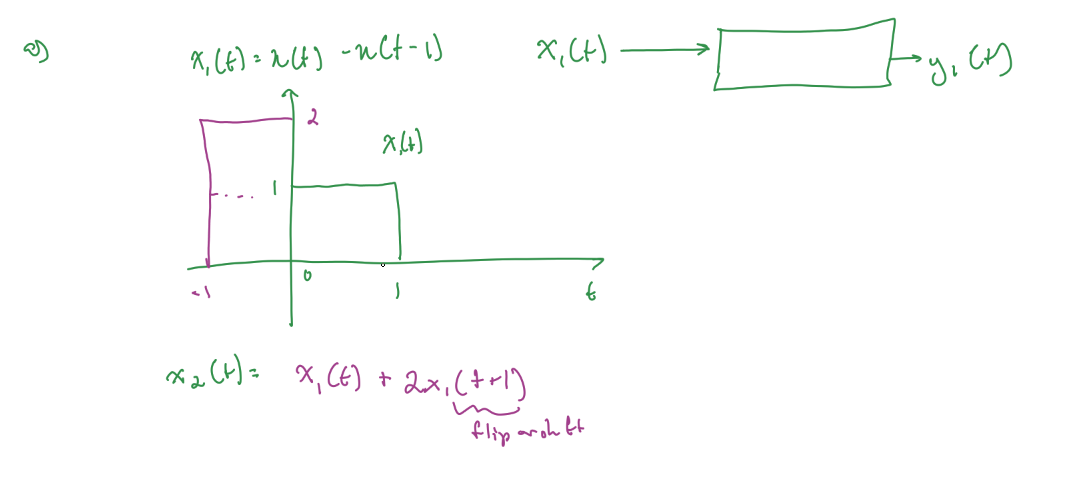 a)
x₁(t) = u(t) - u(t-1)
x₁(t)
y₁(t)
2
x₁(t)
1
0
-1
1
t
x₂(t) = x₁(t) + 2x₁(t+1)
flip